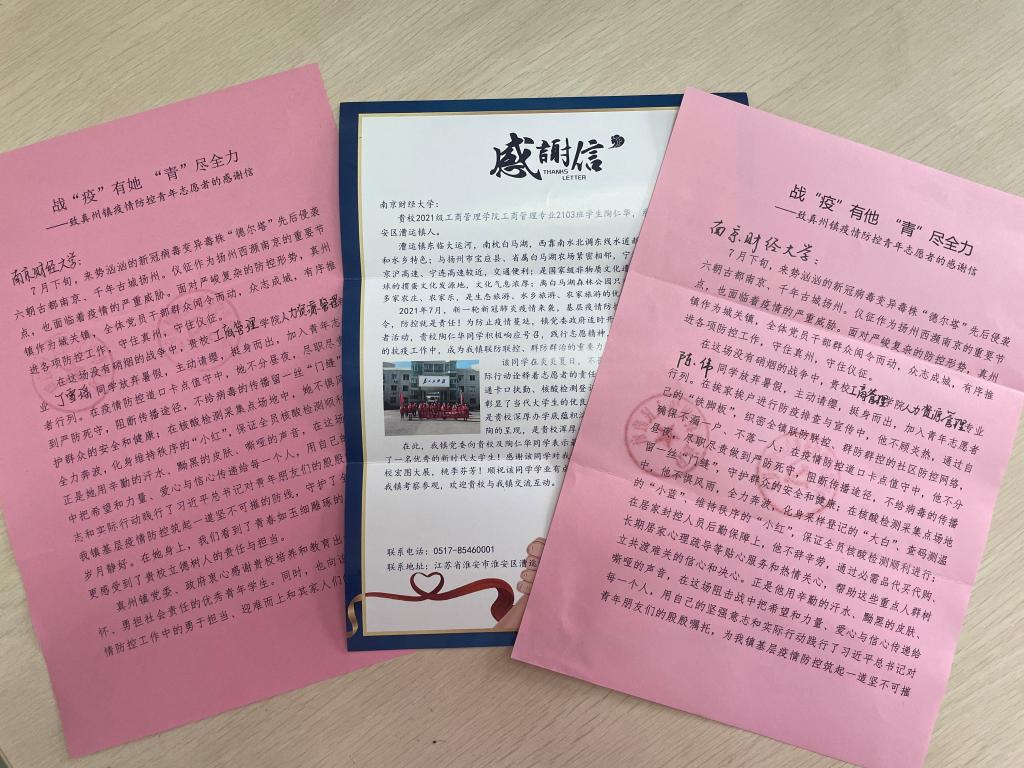 战“疫”有她 “青”尽全力
——致真州镇疫情防控青年志愿者的感谢信
南京财经大学：
7月下旬，来势汹汹的新冠病毒变异毒株“德尔塔”先后侵袭
六朝古都南京、千年古城扬州。仪征作为扬州西濒南京的重要节
点，也面临着疫情的严重威胁。面对严峻复杂的防控形势，真州
镇作为城关镇，全体党员干部群众闻令而动，众志成城，有序推
进各项防控工作，守住真州，守住仪征。
在这场没有硝烟的战争中，贵校工商管理学院人力资源管理专
业 同学放弃暑假，主动请缨，挺身而出，加入青年志愿
者行列。在疫情防控道口卡点值守中，她不分昼夜、尽职尽责
到严防死守，阻断传播途径，不给病毒的传播留一丝“门缝”
护群众的安全和健康；在核酸检测采集点场地中，她不惧风
全力奔波，化身维持秩序的“小红”，保证全员核酸检测顺利
正是她用辛勤的汗水、黝黑的皮肤、嘶哑的声音，在这场
中把希望和力量、爱心与信心传递给每一个人，用自己的
志和实际行动践行了习近平总书记对青年朋友们的殷殷
我镇基层疫情防控筑起一道坚不可摧的防线，守护了全
岁月静好。在她身上，我们看到了青春如玉细雕琢的
更感受到了贵校立德树人的责任与担当。
真州镇党委、政府衷心感谢贵校培养和教育出
怀、勇担社会责任的优秀青年学生。同时，也向这
情防控工作中的勇于担当、迎难而上和其家人们
感謝信
THANKS
LETTER
南京财经大学：
贵校2021级工商管理学院工商管理专业2103班学生陶仁华，
安区漕运镇人。
漕运镇东临大运河，南枕白马湖，西靠南水北调东线水道
和水乡特色；与扬州市宝应县、省属白马湖农场紧密相邻，宁
京沪高速、宁连高速较近，交通便利；是国家级非物质文化遗
球的掼蛋文化发源地，文化气息浓厚；离白马湖森林公园只
多家农庄、农家乐，是生态旅游、水乡旅游、农家旅游的优
2021年7月，新一轮新冠肺炎疫情来袭，基层疫情防
令，防控就是责任！为防止疫情蔓延，镇党委政府适时开
者活动，贵校陶仁华同学积极响应号召，践行志愿精神，
的抗疫工作中，成为我镇联防联控、群防群治的重要力
该同学在炎炎夏日，不畏
际行动诠释着志愿者的责任
通卡口执勤，核酸检测登记
彰显了当代大学生的优良
是贵校深厚办学底蕴积淀
陶的呈现，是贵校浑厚
在此，我镇党委向贵校及陶仁华同学表示最
了一名优秀的新时代大学生！感谢该同学对我
校宏图大展，桃李芬芳！顺祝该同学学业有
我镇考察参观，欢迎贵校与我镇交流互动。
联系电话：0517-85460001
联系地址：江苏省淮安市淮安区漕运
战“疫”有他 “青”尽全力
——致真州镇疫情防控青年志愿者的感谢信
南京财经大学：
7月下旬，来势汹汹的新冠病毒变异毒株“德尔塔”先后侵袭
六朝古都南京、千年古城扬州。仪征作为扬州西濒南京的重要节
点，也面临着疫情的严重威胁。面对严峻复杂的防控形势，真州
镇作为城关镇，全体党员干部群众闻令而动，众志成城，有序推
进各项防控工作，守住真州，守住仪征。
在这场没有硝烟的战争中，贵校工商管理学院人力资源管理专业
陈伟同学放弃暑假，主动请缨，挺身而出，加入青年志愿者
行列。在挨家挨户进行防疫排查与宣传中，他不顾炎热，通过自
己的“铁脚板”，织密全镇联防联控、群防群控的社区防控网络，
确保不漏一户、不落一人；在疫情防控道口卡点值守中，他不分
昼夜、尽职尽责做到严防死守，阻断传播途径，不给病毒的传播
留一丝“门缝”，守护群众的安全和健康；在核酸检测采集点场地
中，他不惧风雨，全力奔波，化身采样登记的“大白”、查码测温
的“小蓝”、维持秩序的“小红”，保证全员核酸检测顺利进行；
在居家封控人员后勤保障上，他不辞辛劳，通过必需品代买代购、
长期居家心理疏导等贴心服务和热情关心，帮助这些重点人群树
立共渡难关的信心和决心。正是他用辛勤的汗水、黝黑的皮肤、
嘶哑的声音，在这场阻击战中把希望和力量、爱心与信心传递给
每一个人，用自己的坚强意志和实际行动践行了习近平总书记对
青年朋友们的殷殷嘱托，为我镇基层疫情防控筑起一道坚不可摧